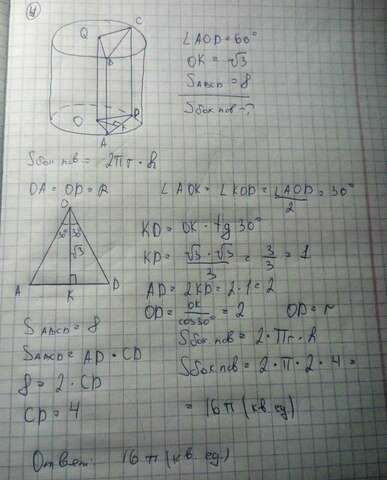 4
Q
C
B
O
D
K
A
∠AOD = 60°
OK = √3
SABCD = 8
Sбок пов - ?
Sбок пов = 2πr · h
OA = OD = R
∠AOK = ∠KOD = ∠AOD/2 = 30°
O
30° 30°
√3
A K D
KD = OK · tg 30°
KD = √3 · √3/3 = 3/3 = 1
AD = 2KD = 2 · 1 = 2
OD = OK/cos30° = 2 OD = r
SABCD = 8
SABCD = AD · CD
8 = 2 · CD
CD = 4
Sбок пов = 2 · πr · h
Sбок пов = 2 · π · 2 · 4 =
= 16π (кв. ед.)
Ответ: 16π (кв. ед.)